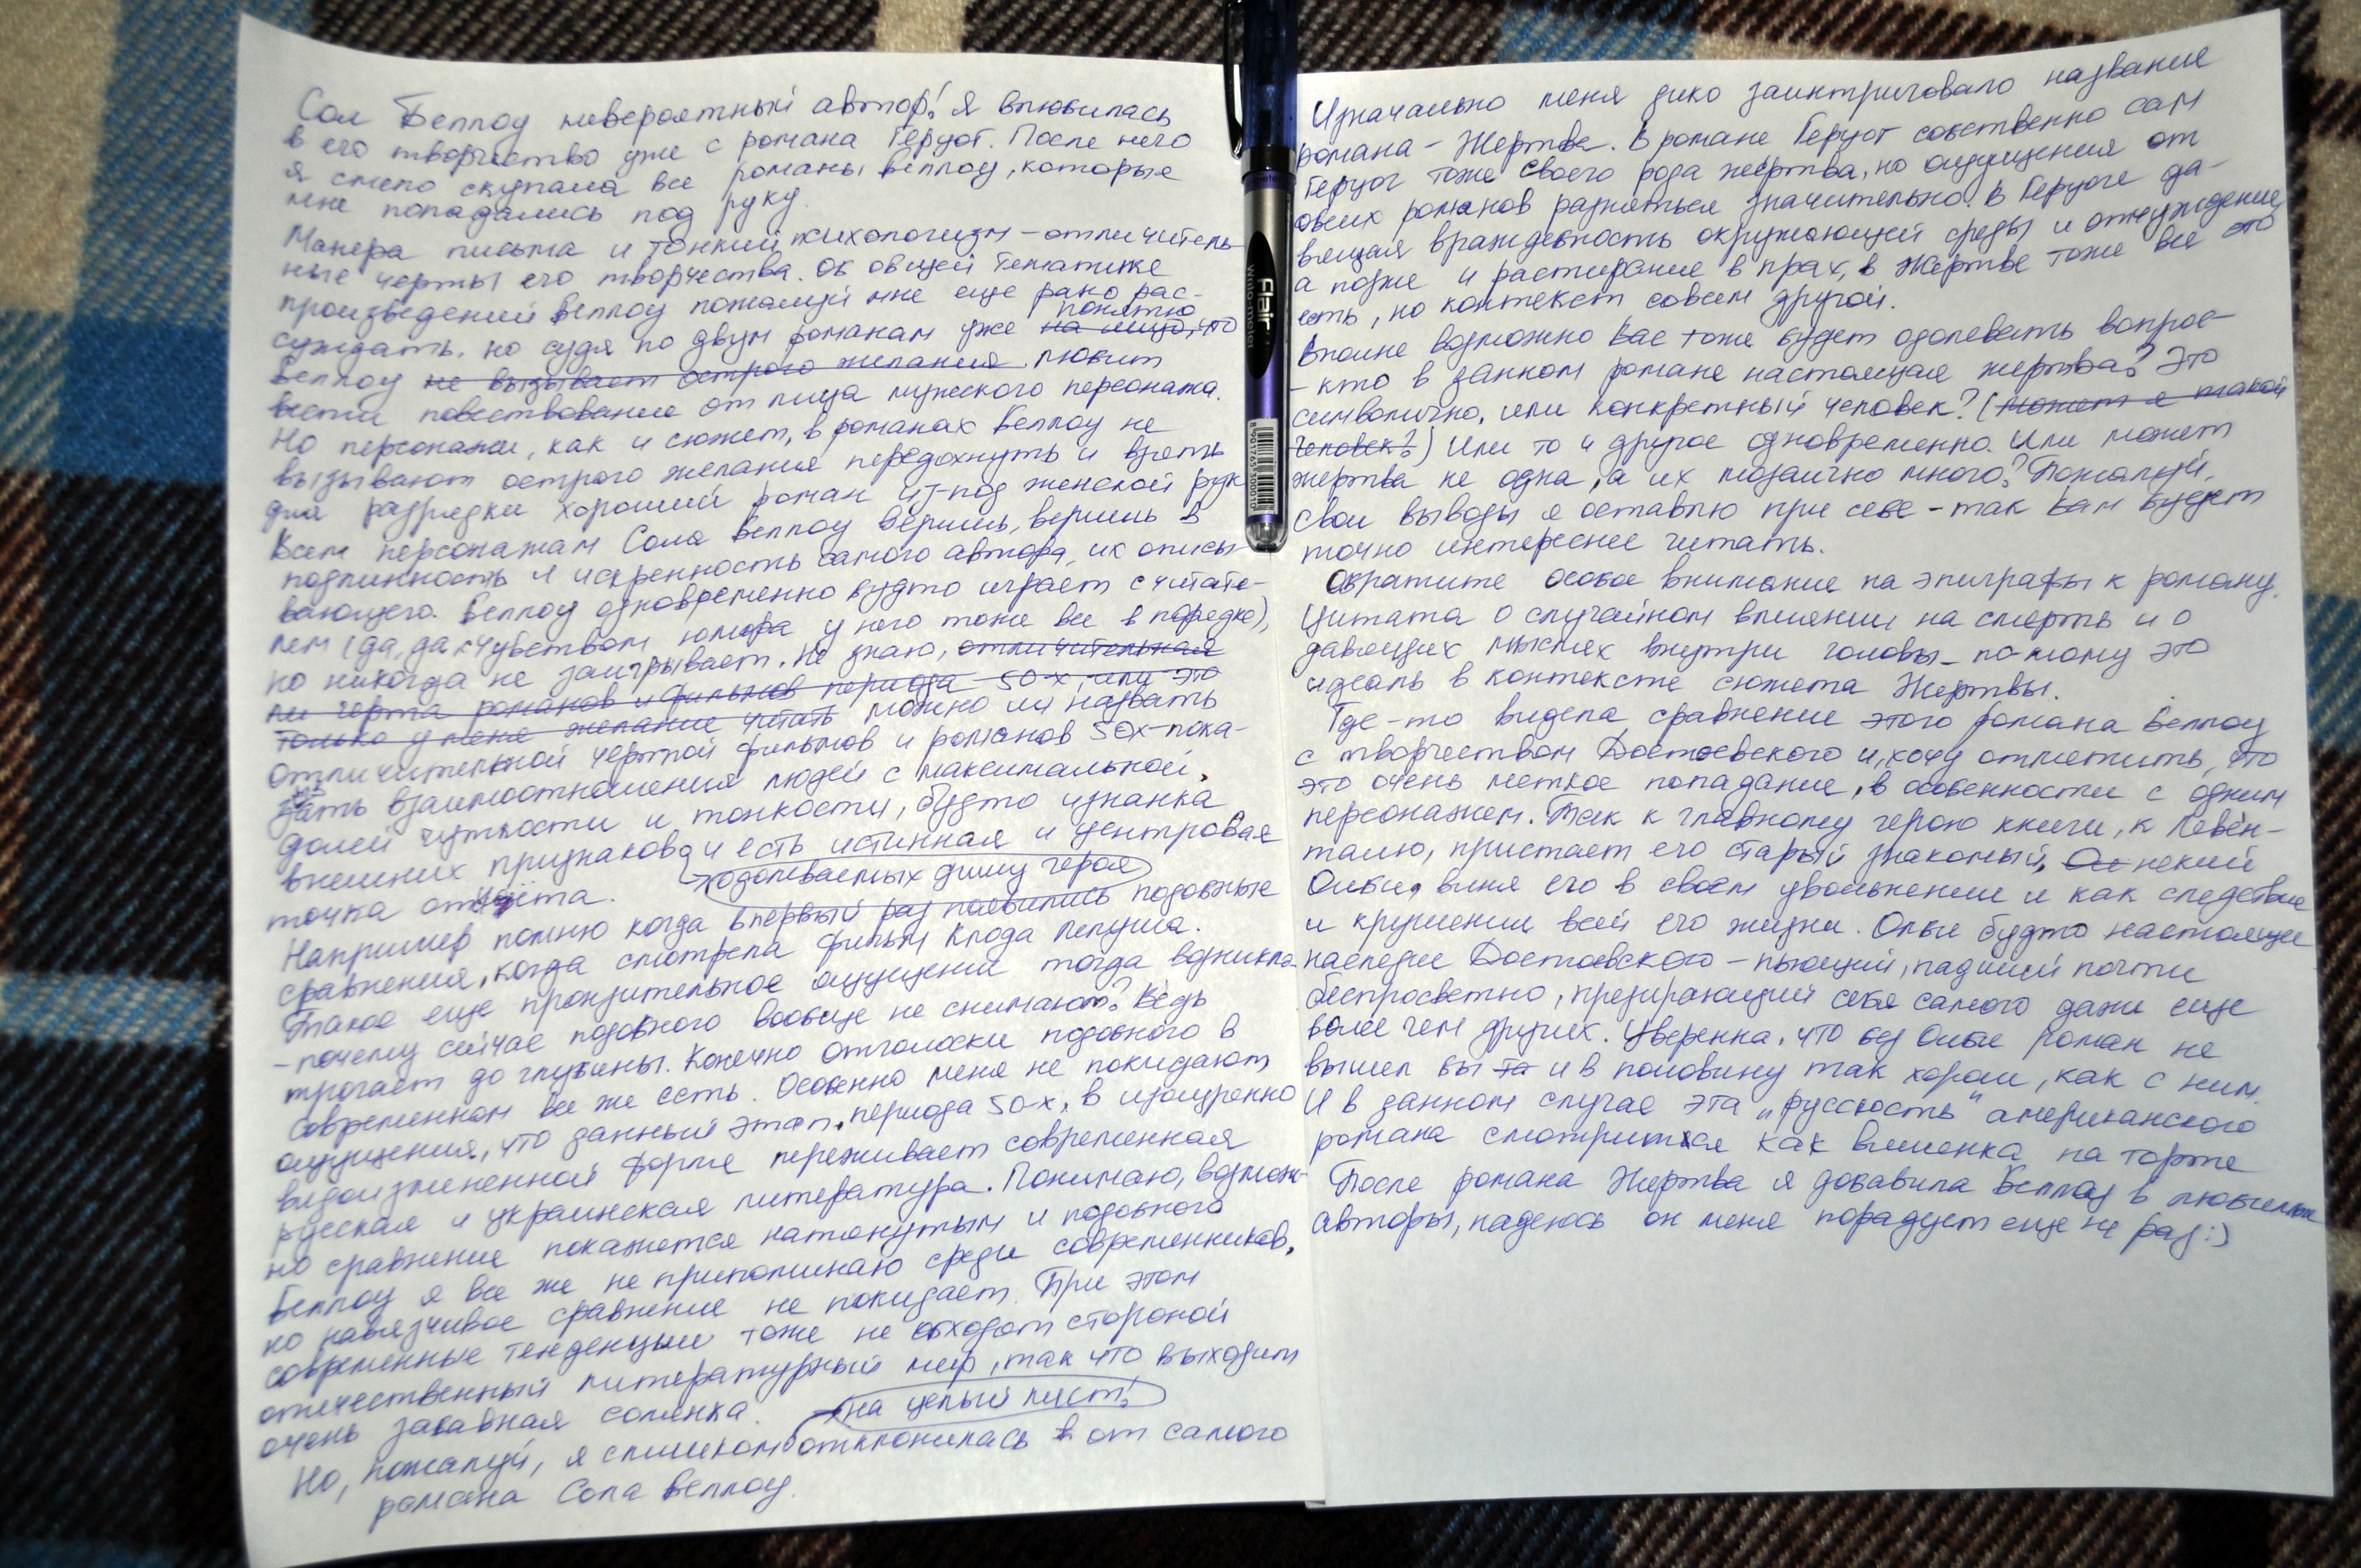 Сол Беллоу невероятный автор! Я влюбилась
в его творчество уже с романа Герцог. После него
я смело скупала все романы Беллоу, которые
мне попадались под руку.
Манера письма и тонкий психологизм - отличитель-
ные черты его творчества. Об общей тематике
произведений Беллоу пожалуй мне еще рано рас-
понятно
суждать, но судя по двум романам уже на лицо, что
Беллоу не вызывает острого желания любит
вести повествование от лица мужского персонажа.
Но персонажи, как и сюжет, в романах Беллоу не
вызывают острого желания передохнуть и взять
для разрядки хороший роман из-под женской рук
Всем персонажам Сола Беллоу веришь, веришь в
подлинность и искренность самого автора, их описы-
вающего. Беллоу одновременно будто играет с читате-
лем (да, да с чувством юмора у него тоже все в порядке),
но никогда не заигрывает. Не знаю, отличительная
ли черта романов и фильмов периода 50-х, или это
только у меня желание читать можно ли назвать
отличительной чертой фильмов и романов 50х - пока-
зать взаимоотношения людей с максимальной
долей чуткости и тонкости, будто изнанка
внешних признаков и есть истинная и центровая
одолеваемых душу героя
точка отсчёта.
Например помню когда впервый раз появились подобные
сравнения, когда смотрела фильм Клода Лелуша.
Такое еще пронзительное ощущение тогда возникло
- почему сейчас подобного вообще не снимают? Ведь
трогает до глубины. Конечно отголоски подобного в
современном все же есть. Особенно меня не покидают
ощущения, что данный этап, периода 50-х, в изощренно
видоизмененной форме переживает современная
русская и украинская литература. Понимаю, возмож-
но сравнение покажется натянутым и подобного
Беллоу я все же не припоминаю среди современников,
но навязчивое сравнение не покидает. При этом
современные тенденции тоже не обходят стороной
отечественный литературный мир, так что выходит
очень забавная солянка.
на целый лист!
Но, пожалуй, я слишком отклонилась в от самого
романа Сола Беллоу.
Изначально меня дико заинтриговало название
романа - Жертва. В романе Герцог собственно сам
Герцог тоже своего рода жертва, но ощущения от
обеих романов разняться значительно. В Герцоге да-
влещая враждебность окружающей среды и отчуждение,
а позже и растирание в прах, в Жертве тоже все это
есть, но контекст совсем другой.
Вполне возможно вас тоже будет одолевать вопрос-
- кто в данном романе настоящая жертва? Это
символично, или конкретный человек? (может и такой
человек?) Или то и другое одновременно. Или может
жертва не одна, а их мозаично много? Пожалуй,
свои выводы я оставлю при себе - так вам будет
точно интереснее читать.
Обратите особое внимание на эпиграфы к роману.
Цитата о случайном влиянии на смерть и о
давящих мыслях внутри головы - по-моему это
идеаль в контексте сюжета Жертвы.
Где-то видела сравнение этого романа Беллоу
с творчеством Достоевского и, хочу отметить, что
это очень меткое попадание, в особенности с одним
персонажем. Так к главному герою книги, к Левен-
талю, пристает его старый знакомый, Ол некий
Олби, виня его в своем увольнении и как следствие
и крушении всей его жизни. Олби будто настоящее
наследие Достоевского - пьющий, падший почти
беспросветно, презирающий себя самого даже еще
более чем других. Уверенна, что без Олби роман не
вышел бы та и в половину так хорош, как с ним.
И в данном случае эта „русскость" американского
романа смотриться как вишенка на торте
После романа Жертва я добавила Беллоу в любимые
авторы, надеюсь он меня порадует еще не раз :)
Flair
Writo-meter